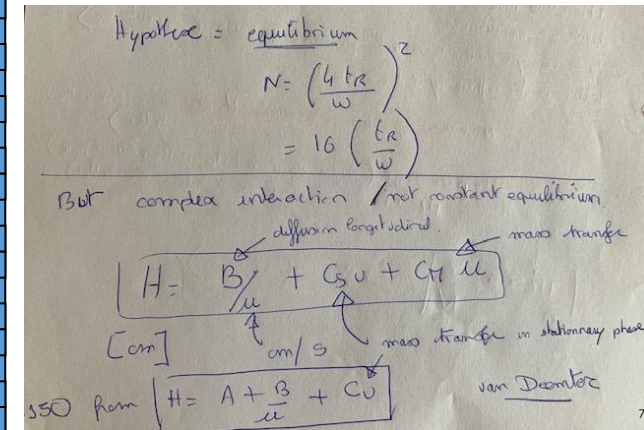 Hypothese = equilibrium
N = (4 tR / w)²
= 16 (tR / w)
But complex interaction / not constant equilibrium.
diffusion longitudinal. mass transfer
H = B/u + Cs u + CM u
[cm] cm/s mass transfer in stationnary phase
1950 from H = A + B/u + Cu van Deemter
7